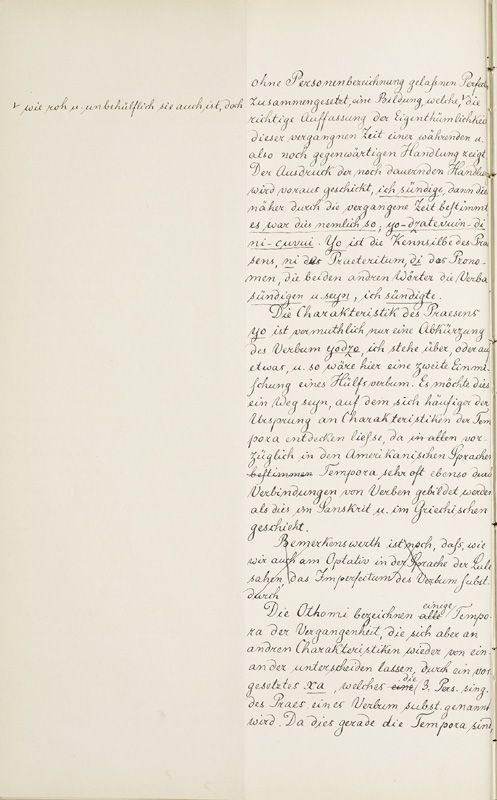 ohne Personenbezeichnung gelaßnen Perfect
zusammengesetzt, eine Bildung, welche, die
v wie roh u. unbehülflich sie auch, ist, doch
richtige Auffassung der Eigenthümlichkeit
dieser vergangnen Zeit einer währenden u.
also noch gegenwärtigen Handlung zeigt.
Der Ausdruck der noch dauernden Handlung
wird voraus geschickt, ich sündige, dann dies
näher durch die vergangene Zeit bestimmt
es war dies nemlich so; yo-dzatevuin-di
ni-cuvui. Yo ist die Kennsilbe des Prae
sens, ni das Praeteritum, di das Prono-
men, die beiden andren Wörter die Verba
sündigen u. seyn, ich sündigte.
Die Charakteristik des Praesens
yo ist vermuthlich nur eine Abkürzung
des Verbum yodzo, ich stehe über, oder auf
etwas, u. so wäre hier eine zweite Einmi-
schung eines Hülfsverbum. Es möchte dies
ein Weg seyn, auf dem sich häufiger der
Ursprung an Charakteristiken der Tem
pora entdecken ließse, da in allen vor-
züglich in den Amerikanischen Sprachen
bestimmen Tempora sehr oft ebenso durch
Verbindungen von Verben gebildet werden
als dies im Sanskrit u. im Griechischen
geschieht.
Bemerkenswerth ist noch, daß, wie
wir auch am Optativ in der Sprache der Lule
sahen, das Imperfectum des Verbum subst.
durch
Die Othomi bezeichnen alle einige Tempo-
ra der Vergangenheit, die sich aber an
andren Charakteristiken wieder von ein-
ander unterscheiden lassen, durch ein vor
gesetztes xa, welches eine die 3. Pers. sing.
des Praes. eines Verbum subst. genannt
wird. Da dies gerade die Tempora sind,